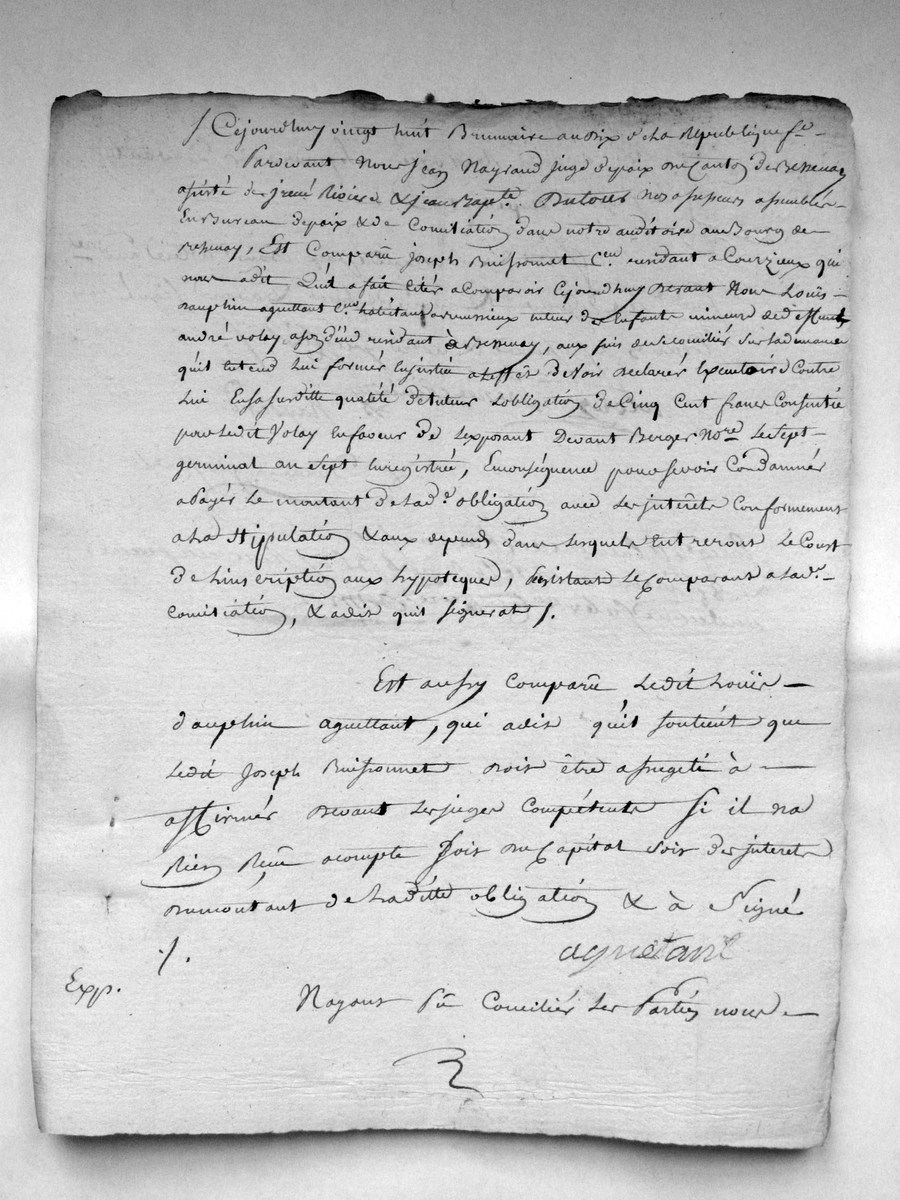 / Cejourdhuy vingt huit Brumaire an dix de la Republique f.e
Pardevant Nous jean Nayrand juge depaix du Canton de Bessenay
assisté de jrené Riviere & jean Bap.te Dutour nos assesseurs assemblés
En Bureau depaix & de Conciliation dans notre auditoire au Bourg de
Bessenay, Est Comparu joseph Buissonnet C.en residant a Courzieux qui
nous adit Quil a fait citer a comparoir Cejourdhuy Devant Nous Louis
Dauphin aguettant C.en habitant a tuteur des Enfants mineurs de deffunt
andré volay a son décè residant à Bessenay, aux fins de se concilier sur la demande
quil entend lui former En justice a Leffet de voir declarer Executoire Contre
lui En sa susditte qualité de tuteur Lobligation de Cinq Cent francs Consentie
par ledit Volay En faveur de Lexposant Devant Berger No.re Le sept
germinal an sept Enregistrée, Enconséquence pour se voir Condamner
a Payer Le montant de lad.e obligation avec les interets Conformement
a la Stipulation & aux depends dans lesquels Entreront Le Cout
de Linscription aux hypoteques, Le Comparant a lad.e
Conciliation, & a dit quil signerat /.
Est aussy Comparu Ledit Louis
dauphin aguettant, qui adit quil soutient que
Ledit Joseph Buissonnet doit être assugeté à
affirmer devant les juges Compétents Si il na
Rien Reçu acompte Soit du Capital Soit des interets
du montant de Laditte obligation & à Signé
/. aguetant
Exp.
Nayant Pu Concilier Les Parties nous